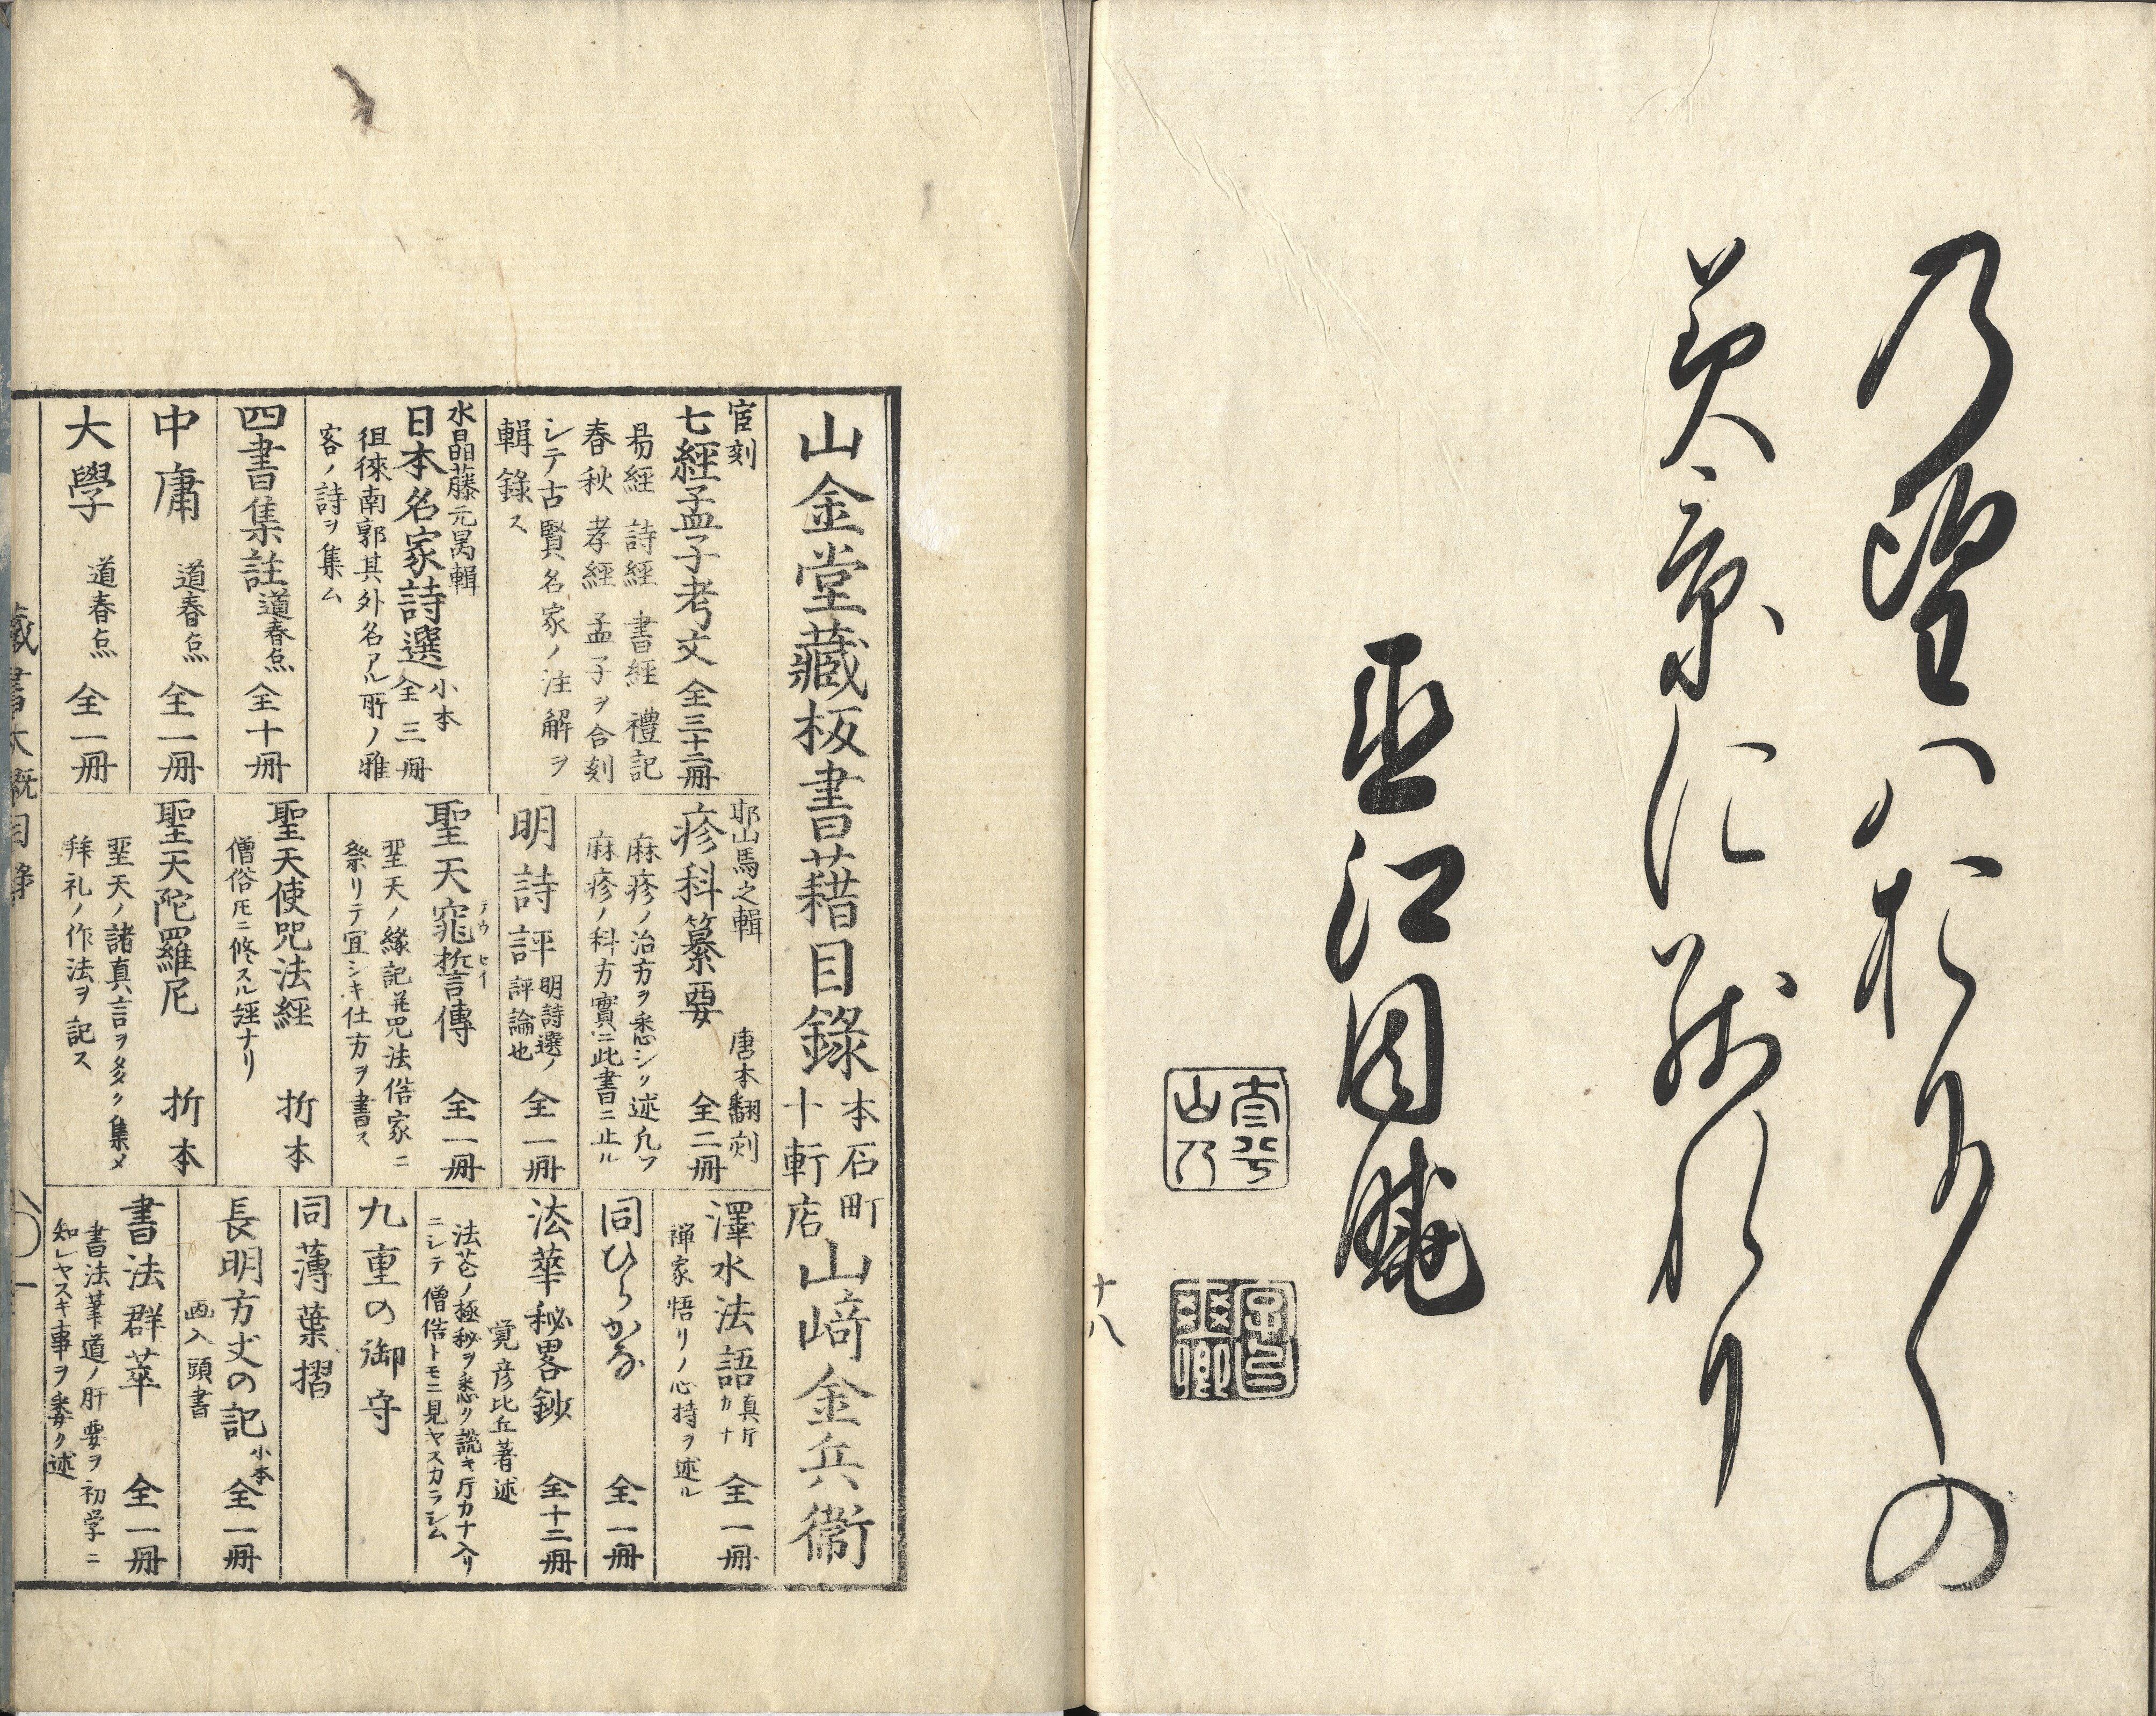 乃望ハおりふしの
美景に政れり
亜江因
十八
山金堂藏板書藉目錄
本石町
十軒店
山﨑金兵衞
官刻
七經孟子考文 全三十二冊
易經 詩經 書經 禮記
春秋 孝經 孟子ヲ合刻
シテ古賢名家ノ注解ヲ
輯錄ス
水晶藤元昺輯
日本名家詩選 小本 全三冊
徂徠南郭其外名アル所ノ雅
客ノ詩ヲ集ム
四書集註 道春点 全十冊
中庸 道春点 全一冊
大學 道春点 全一冊
耶山馬之輯 唐本翻刻
疹科纂要 全二冊
麻疹ノ治方ヲ悉シク述凡ソ
麻疹ノ科方實ニ此書ニ止ル
明詩評 明詩選ノ評論也 全一冊
聖天窕誓傳 全一冊
テウ セイ
聖天ノ緣記並咒法俗家ニ
祭リテ宜シキ仕方ヲ書ス
聖天使咒法經 折本
僧俗圧ニ修スル經ナリ
聖天陀羅尼 折本
聖天ノ諸真言ヲ多ク集メ
拜礼ノ作法ヲ記ス
澤水法語 真片カナ 全一冊
禅家悟リノ心持ヲ述ル
同ひらかな 全一冊
法華秘畧鈔 全十二冊
覚彦比丘著述
法花ノ極秘ヲ悉ク説キ片カナ入リ
ニシテ僧俗トモニ見ヤスカラシム
九重の御守
同薄葉摺
長明方丈の記 小本 全一冊
画入頭書
書法群萃 全一冊
書法筆道ノ肝要ヲ初学ニ
知レヤスキ事ヲ委ク述
藏書大概目錄
一